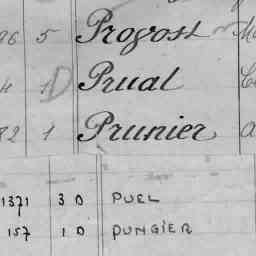 96 5 Provost
4 1 D Prual
82 1 Prunier a
1371 3 0 PUEL
157 1 0 PUNGIER